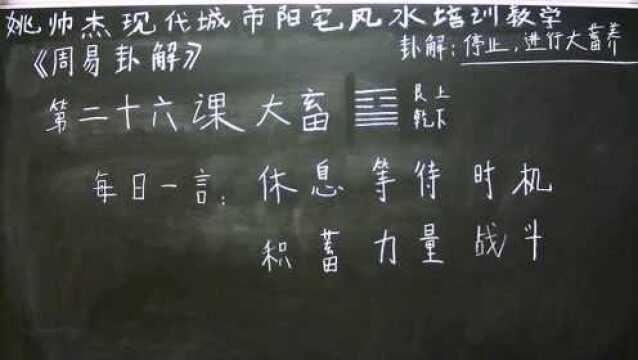 姚帅杰现代城市阳宅风水培训教学
《周易卦解》
卦解：停止，进行大蓄养
第二十六课 大畜 艮上
乾下
每日一言：休息等待时机
积蓄力量战斗